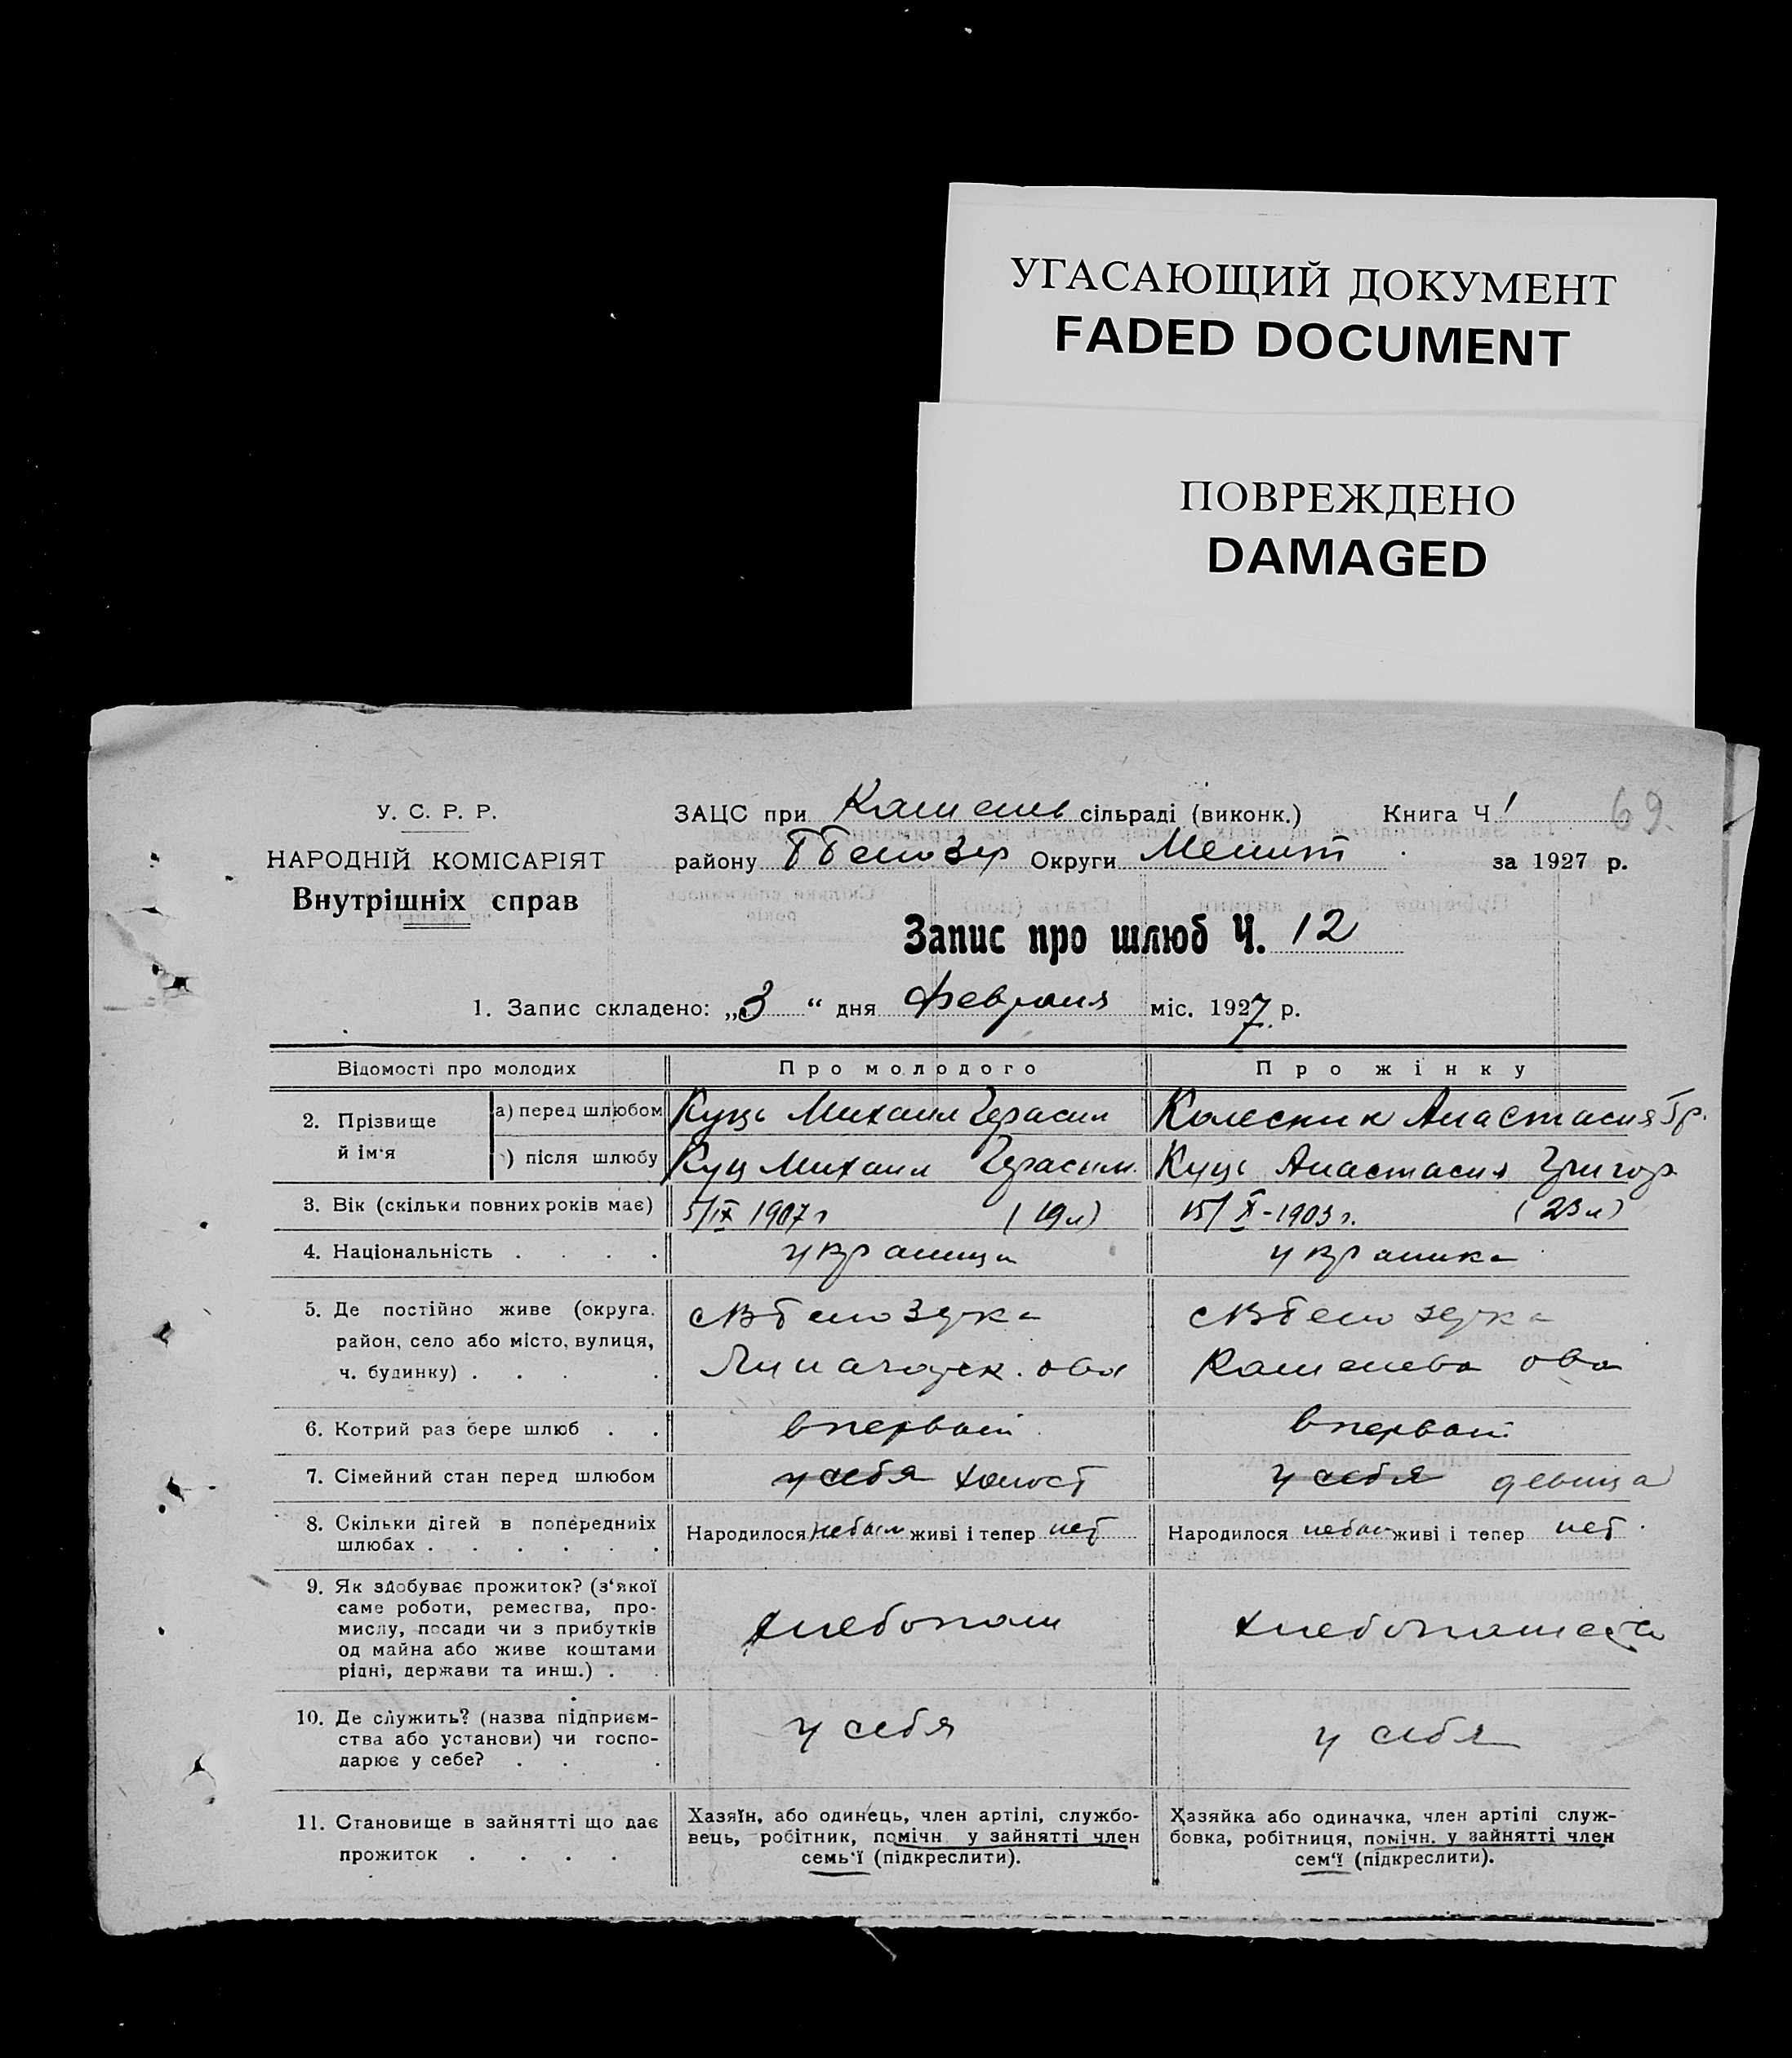 УГАСАЮЩИЙ ДОКУМЕНТ
FADED DOCUMENT
ПОВРЕЖДЕНО
DAMAGED
69.
У. С. Р. Р.
НАРОДНІЙ КОМІСАРІЯТ
Внутрішніх справ
ЗАЦС при сільраді (виконк.) Книга Ч 1
району Округи Мелит за 1927 р.
Запис про шлюб Ч. 12
1. Запис складено: „3“ дня февраля міс. 1927 р.
Відомості про молодих Про молодого Про жінку
2. Прізвище й ім'я
а) перед шлюбом Куць Михаил Герасим Колесник Анастасия Гр.
) після шлюбу Куц Михаил Герасим. Куць Анастасия Григор
3. Вік (скільки повних років має) 5/IX 1907 г (19 л) 15/X-1903 г. (23 л)
4. Національність . . . . украинца украинка
5. Де постійно живе (округа. район, село або місто, вулиця, ч. будинку) . . . .
6. Котрий раз бере шлюб . . впервой впервой
7. Сімейний стан перед шлюбом у себя холост у себя девица
8. Скільки дігей в попередніх шлюбах . . . . . .
Народилося небыл живі і тепер нет Народилося небыл живі і тепер нет
9. Як здобуває прожиток? (з'якої
саме роботи, ремества, про-
мислу, посади чи з прибутків
од майна або живе коштами
рідні, держави та инш.) . .
хлебопаш хлебопашест
10. Де служить? (назва підприєм-
ства або установи) чи госпо-
дарює у себе? . . .
у себя у себя
11. Становище в зайнятті що дає
прожиток . . . .
Хазяїн, або одинець, член артілі, службо-
вець, робітник, помічн у зайнятті член
семь'ї (підкреслити).
Хазяйка або одиначка, член артілі служ-
бовка, робітниця, помічн. у зайнятті член
сем'ї (підкреслити).